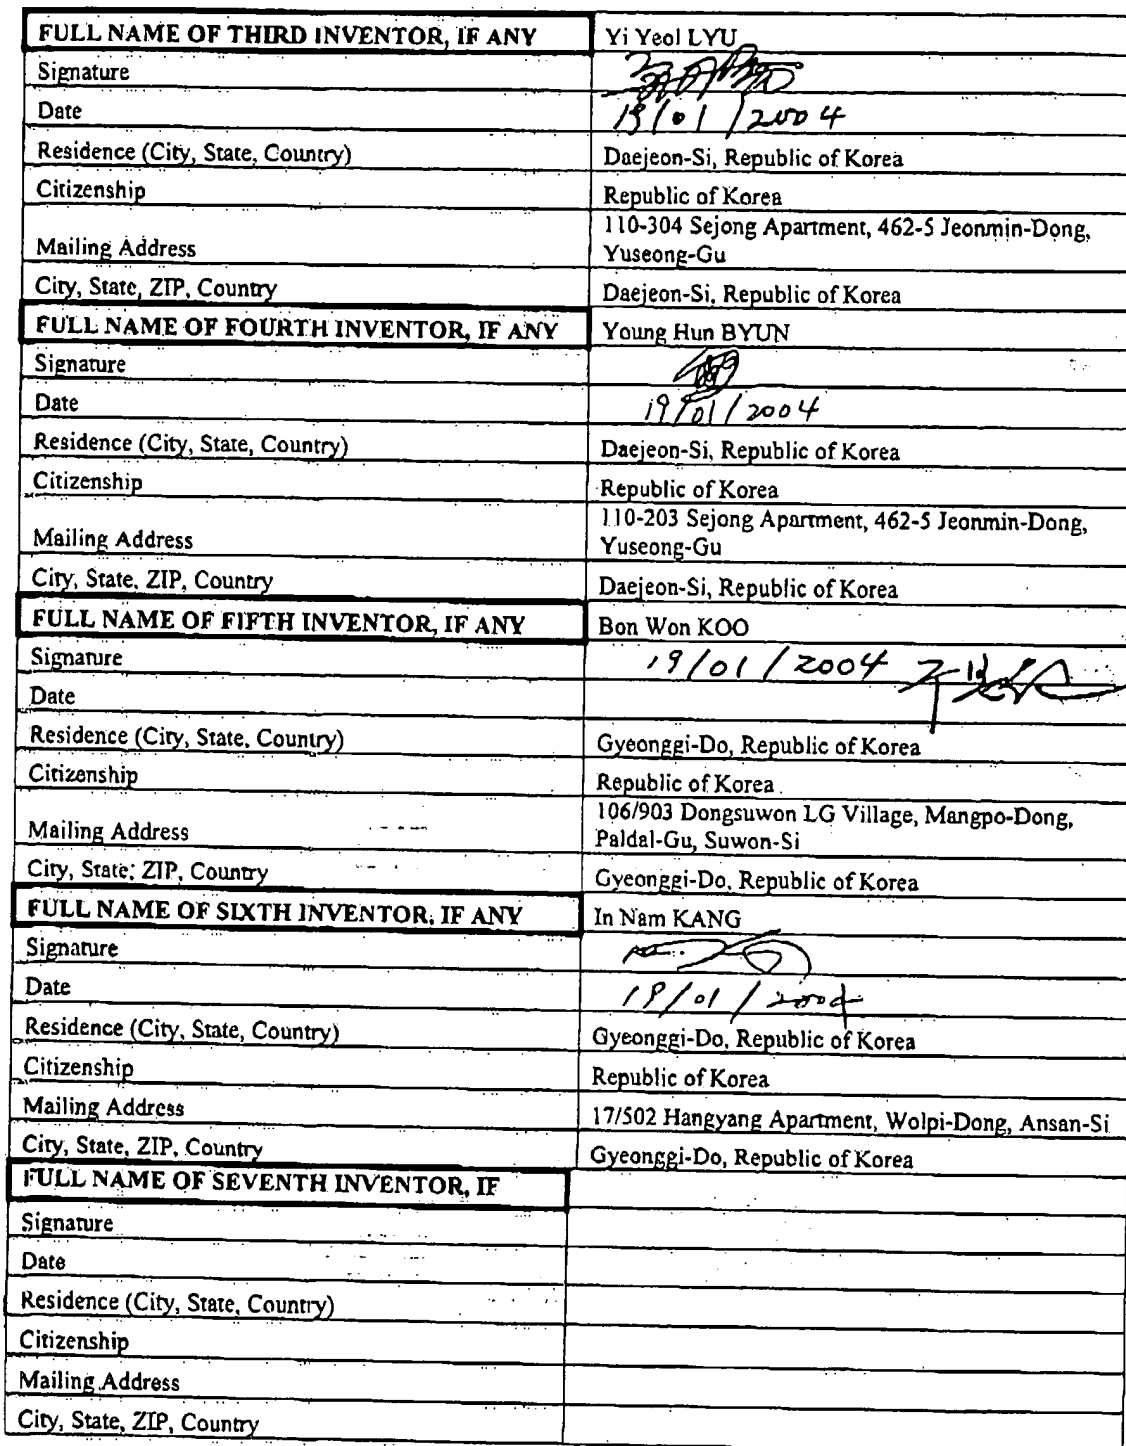 FULL NAME OF THIRD INVENTOR, IF ANY Yi Yeol LYU
Signature
Date 19/01/2004
Residence (City, State, Country) Daejeon-Si, Republic of Korea
Citizenship Republic of Korea
Mailing Address 110-304 Sejong Apartment, 462-5 Jeonmin-Dong,
Yuseong-Gu
City, State, ZIP, Country Daejeon-Si, Republic of Korea
FULL NAME OF FOURTH INVENTOR, IF ANY Young Hun BYUN
Signature
Date 19/01/2004
Residence (City, State, Country) Daejeon-Si, Republic of Korea
Citizenship Republic of Korea
Mailing Address 110-203 Sejong Apartment, 462-5 Jeonmin-Dong,
Yuseong-Gu
City, State, ZIP, Country Daejeon-Si, Republic of Korea
FULL NAME OF FIFTH INVENTOR, IF ANY Bon Won KOO
Signature 19/01/2004
Date
Residence (City, State, Country) Gyeonggi-Do, Republic of Korea
Citizenship Republic of Korea
Mailing Address 106/903 Dongsuwon LG Village, Mangpo-Dong,
Paldal-Gu, Suwon-Si
City, State, ZIP, Country Gyeonggi-Do, Republic of Korea
FULL NAME OF SIXTH INVENTOR, IF ANY In Nam KANG
Signature
Date 19/01/2004
Residence (City, State, Country) Gyeonggi-Do, Republic of Korea
Citizenship Republic of Korea
Mailing Address 17/502 Hangyang Apartment, Wolpi-Dong, Ansan-Si
City, State, ZIP, Country Gyeonggi-Do, Republic of Korea
FULL NAME OF SEVENTH INVENTOR, IF
Signature
Date
Residence (City, State, Country)
Citizenship
Mailing Address
City, State, ZIP, Country